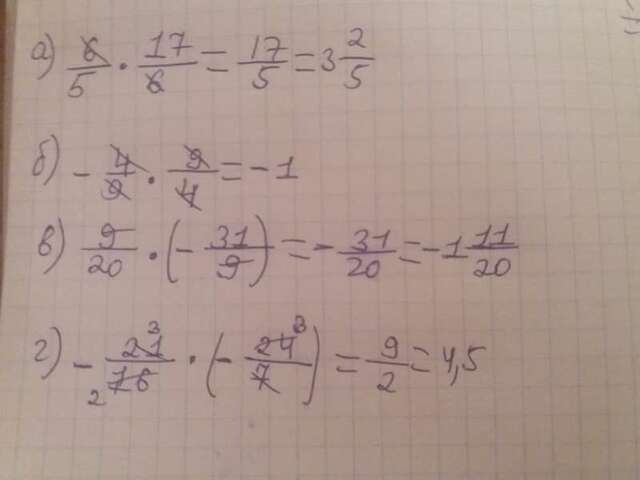 а) 6/5 · 17/6 = 17/5 = 3 2/5
б) - 4/9 · 9/4 = - 1
в) 9/20 · (- 31/9) = - 31/20 = - 1 11/20
г) - 21 3/2 16 · (- 24 3/7) = 9/2 = 4,5